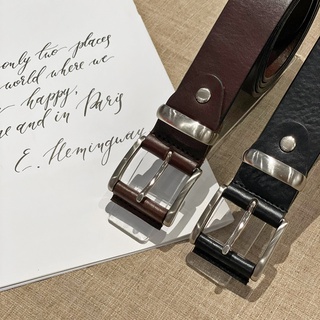 only two places
world where we
happy,
and in Paris
E. Hemingway